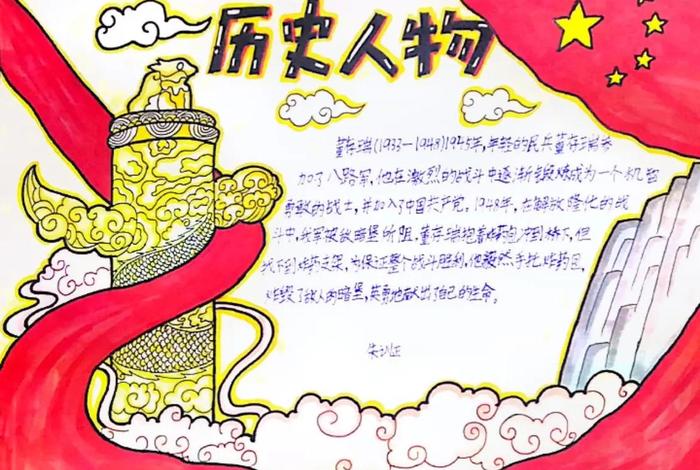 历史人物
董存瑞(1933—1948)1945年,年轻的民兵董存瑞参
加了八路军,他在激烈的战斗中逐渐锻炼成为一个机智
勇敢的战士,并加入了中国共产党。1948年,在解放隆化的战
斗中,我军被敌暗堡所阻,董存瑞抱着炸药包冲到桥下,但
找不到炸药支架,为保证整个战斗胜利,他毅然手托炸药包,
炸毁了敌人的暗堡,英勇地献出了自己的生命。